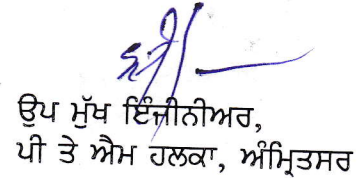 ਉਪ ਮੁੱਖ ਇੰਜੀਨੀਅਰ,
ਪੀ ਤੇ ਐਮ ਹਲਕਾ, ਅੰਮ੍ਰਿਤਸਰ